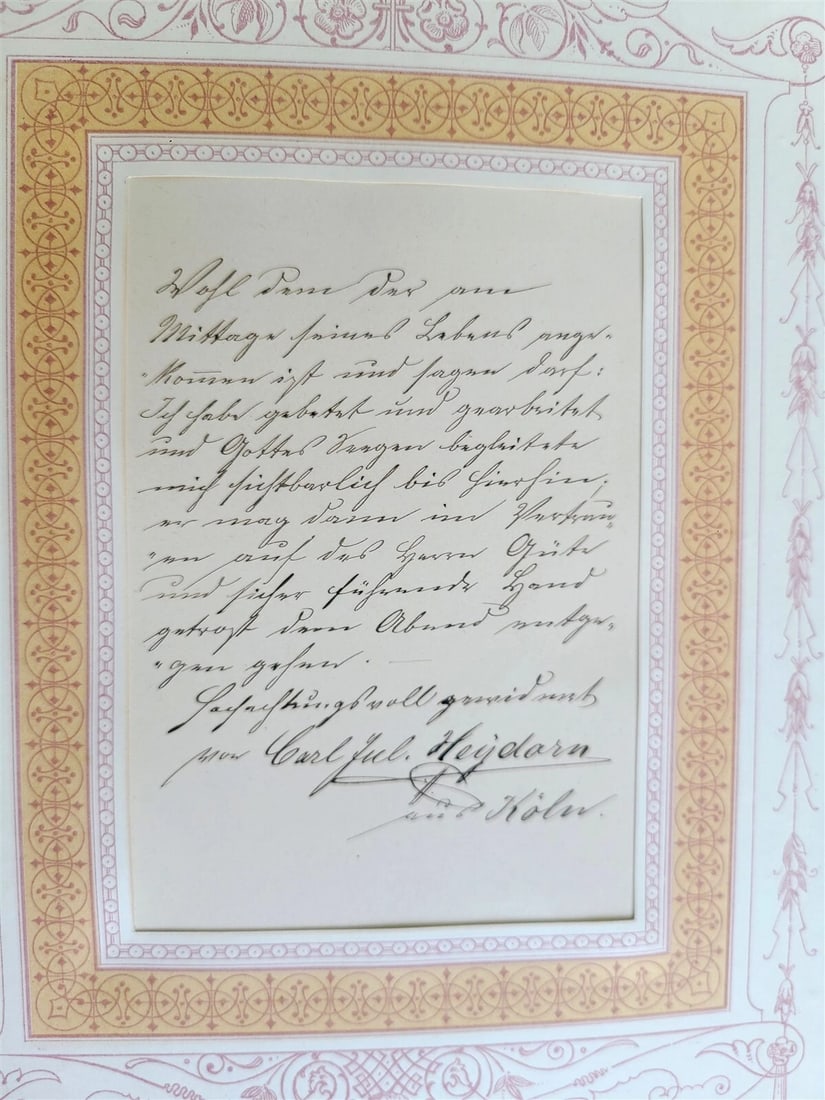 Wohl dem der am
Mittage seines Lebens ange-
"kommen ist und sagen darf:
Ich habe gebetet und gearbeitet
und Gottes Seegen begleitete
mich sichtbarlich bis hierhin;
er mag dann im Vertrau-
"en auf des Herrn Güte
und sicher führende Hand
getrost dem Abend entge-
"gen gehen. —
Hochachtungsvoll gewidmet
von Carl Jul. Heydorn
aus Köln.